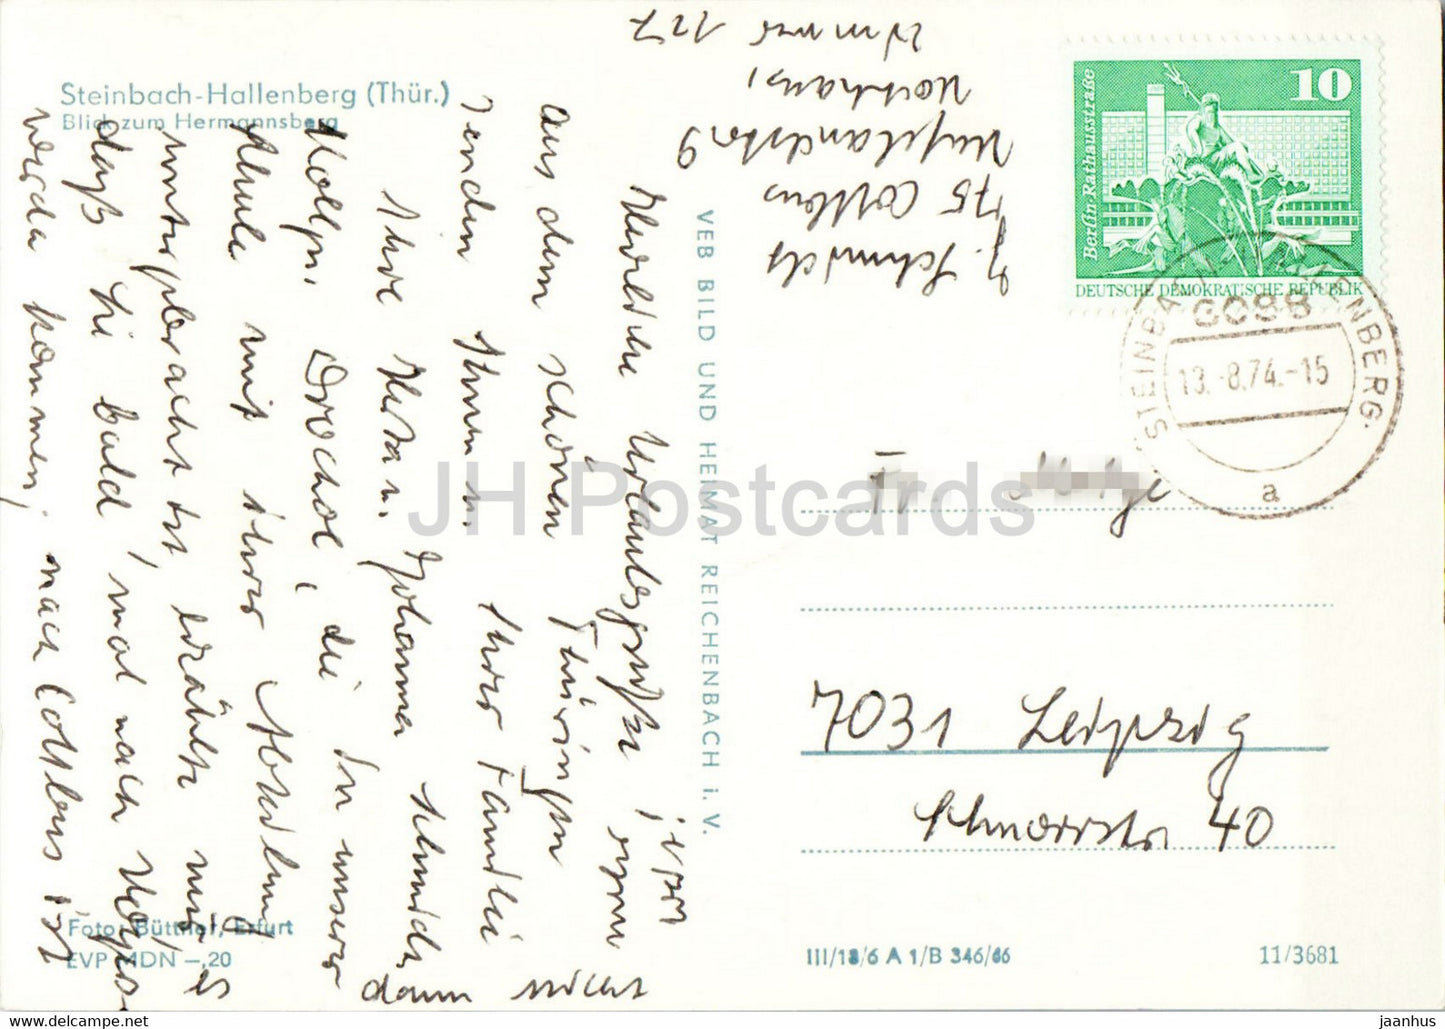 Steinbach-Hallenberg (Thür.)
Blick zum Hermannsberg
J. Schmidt
75 Cottbus
Hufelandstr. 9
Hochhaus,
Zimmer 127
Herzliche Urlaubsgrüße
aus dem schönen Thüringen
senden Ihnen u. Ihrer Familie
Ihre Krista u. Johanna Schmidt,
Kollgn. Drochol, die in unserer
Schule mit ihrer Abteilung
untergebracht ist, erzählte mir,
daß Sie bald mal nach
werde kommen, nach Cottbus ist
es
dann nicht
mehr
weit,
VEB BILD UND HEIMAT REICHENBACH i. V.
10
Berlin, Rathausstraße
DEUTSCHE DEMOKRATISCHE REPUBLIK
STEINBACH-HALLENBERG
6088
13.-8.74.-15
a
Fr.
7031 Leipzig
Schnorrstr. 40
Foto: Büttner, Erfurt
EVP MDN -,20
III/18/6 A 1/B 346/66
11/3681
JH Postcards
www.delcampe.net
jaanhus